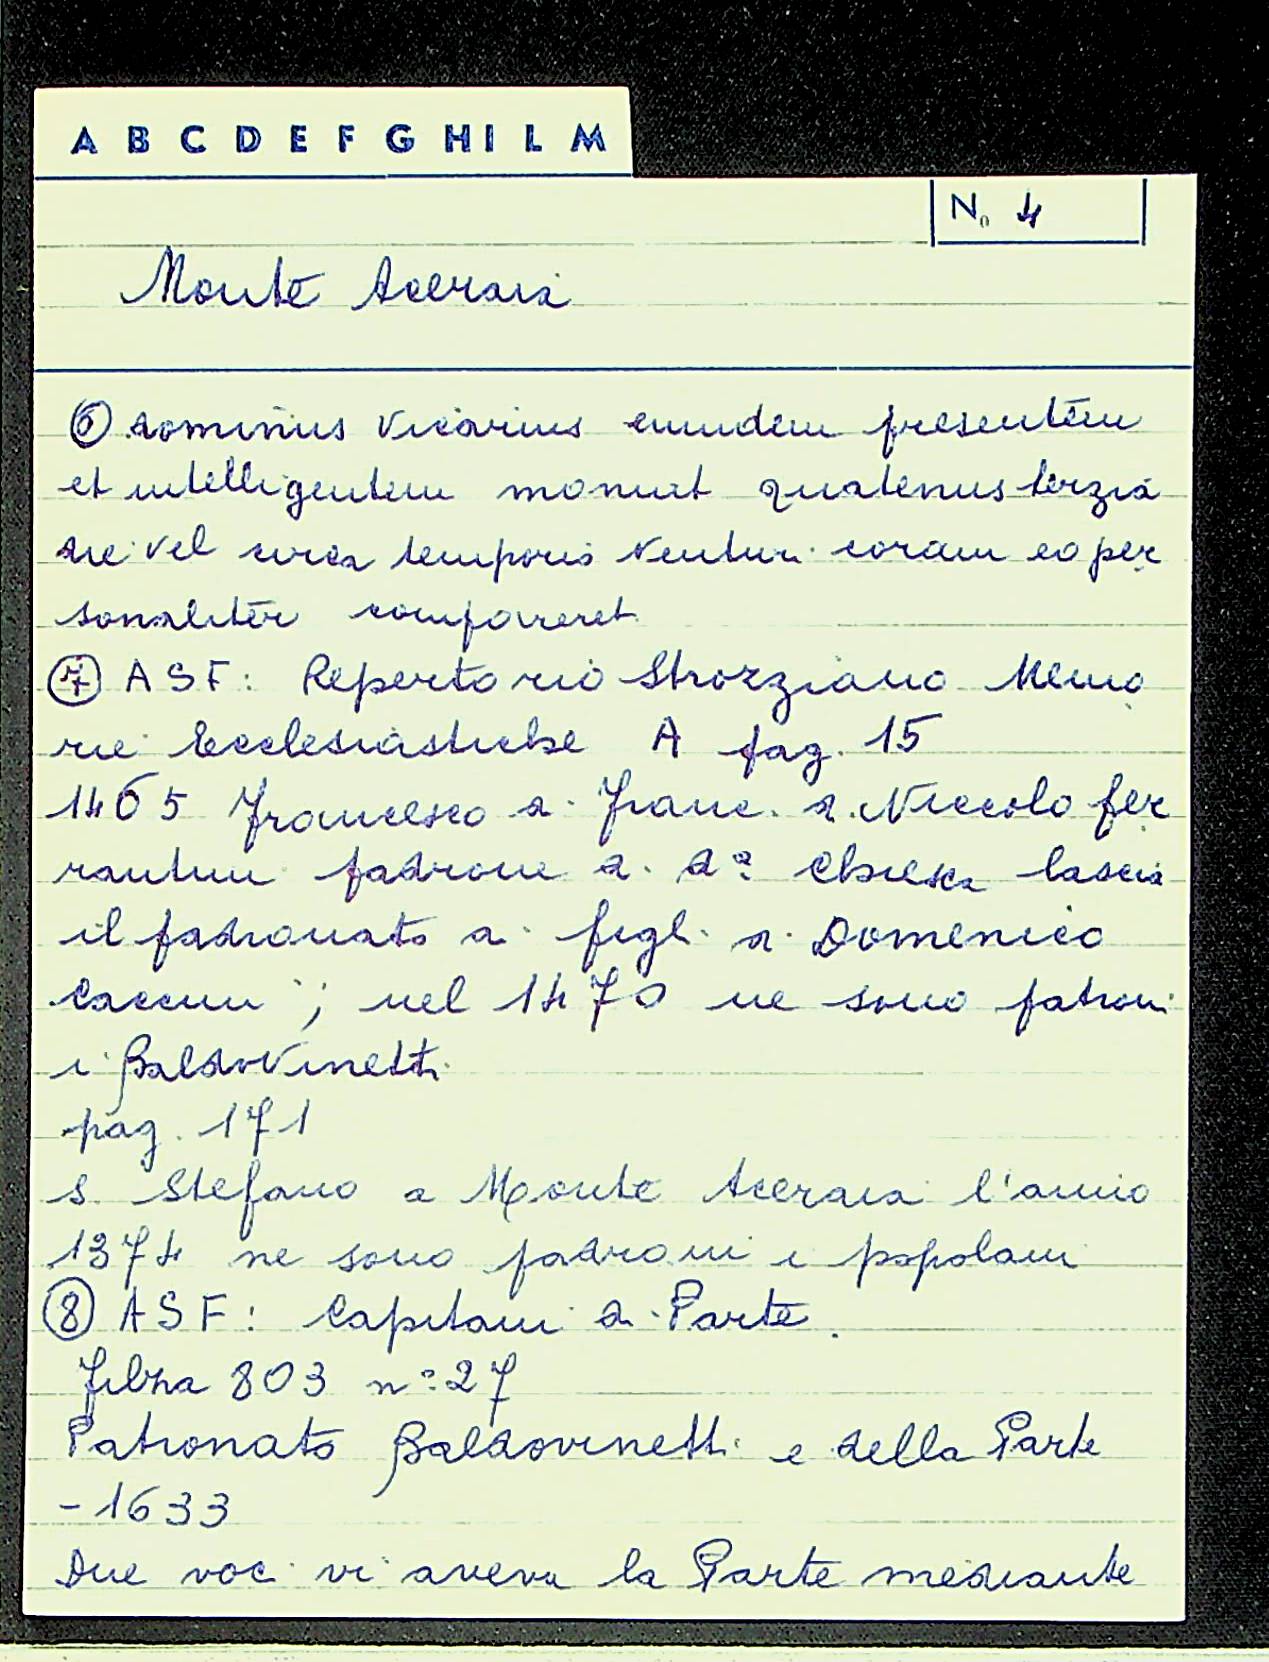 A B C D E F G H I L M
No 4
Monte Aceraia
⑥ dominus Vicarius eumdem presentem
et intelligentem monuit quatenus terzia
die vel circa temporis ventur. coram eo per
sonaliter compareret
⑦ ASF: Repertorio Strozziano Memo
rie Ecclesiastiche A pag. 15
1465 Francesco di Franc. di Niccolo fer
rantini padrone di da chiesa lascia
il padronato ai figli di Domenico
Caccini; nel 1470 ne sono patroni
i Baldovinetti
pag. 171
S. Stefano a Monte Aceraia l'anno
1374 ne sono padroni i popolani
⑧ ASF: Capitani di Parte.
filza 803 n° 27
Patronato Baldovinetti e della Parte
- 1633
Due voci vi aveva la Parte mediante